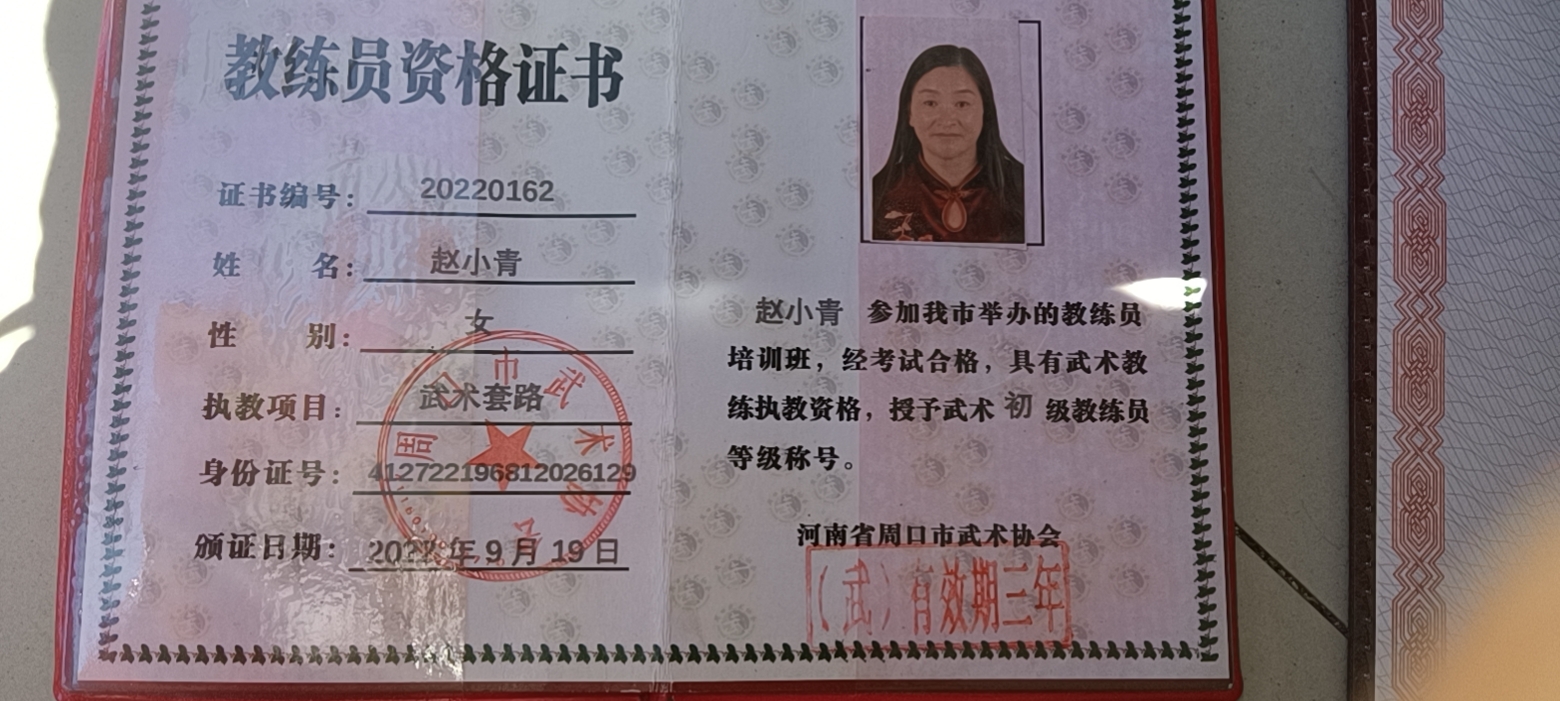 教练员资格证书
证书编号：20220162
姓 名：赵小青
性 别：女
执教项目：武术套路
身份证号：412722196812026129
颁证日期：2022 年 9 月 19 日
周口市武术协会
赵小青 参加我市举办的教练员
培训班，经考试合格，具有武术教
练执教资格，授予武术 初 级教练员
等级称号。
河南省周口市武术协会
（武）有效期三年